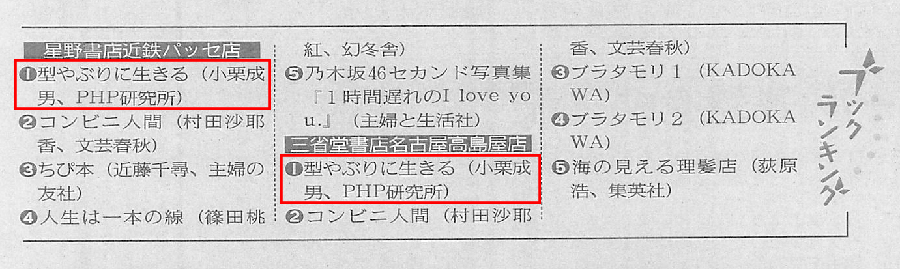 星野書店近鉄パッセ店
❶型やぶりに生きる（小栗成
男、PHP研究所）
❷コンビニ人間（村田沙耶
香、文芸春秋）
❸ちび本（近藤千尋、主婦の
友社）
❹人生は一本の線（篠田桃
紅、幻冬舎）
❺乃木坂46セカンド写真集
『１時間遅れのI love yo
u.』（主婦と生活社）
三省堂書店名古屋高島屋店
❶型やぶりに生きる（小栗成
男、PHP研究所）
❷コンビニ人間（村田沙耶
香、文芸春秋）
❸ブラタモリ１（KADOKA
WA）
❹ブラタモリ２（KADOKA
WA）
❺海の見える理髪店（荻原
浩、集英社）
ブック
ランキング